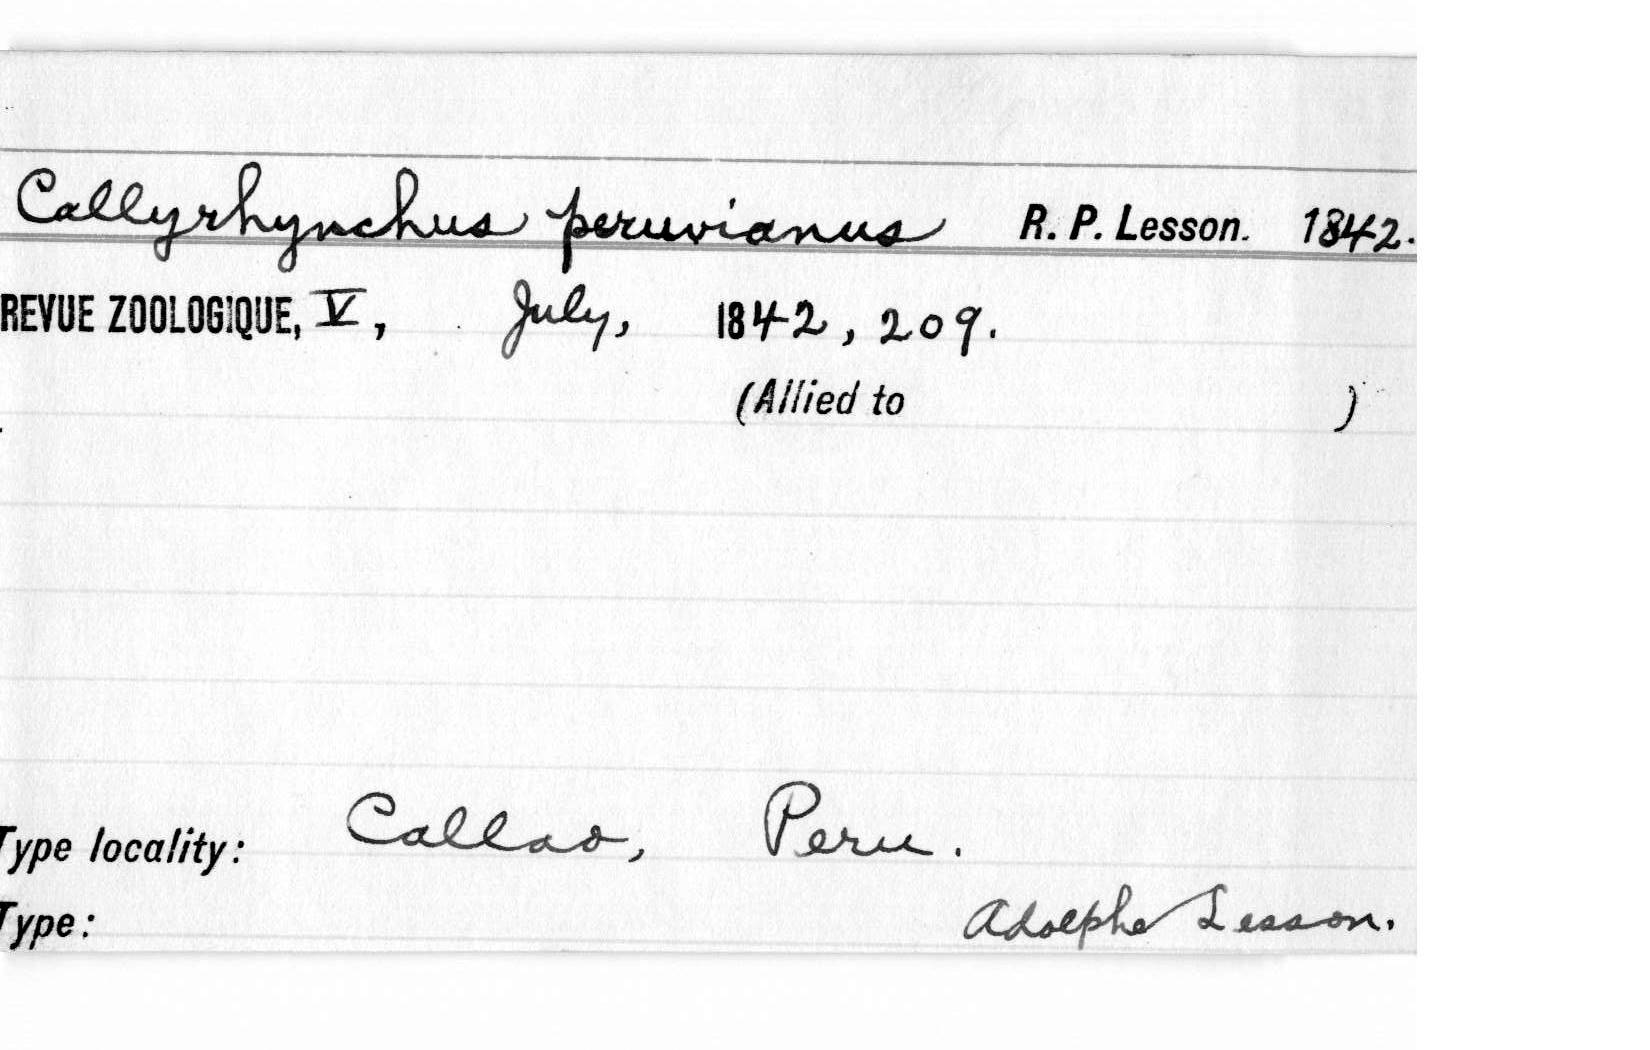 Callyrhynchus peruvianus R. P. Lesson. 1842.
REVUE ZOOLOGIQUE, V, July, 1842, 209.
(Allied to )
Type locality: Callao, Peru.
Type: Adolphe Lesson.